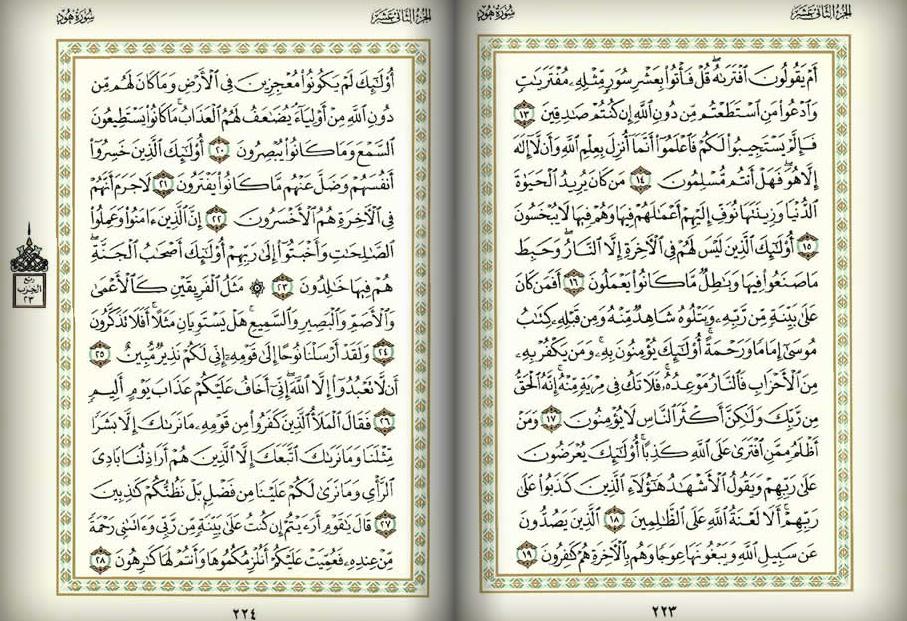 الجزء الثاني عشر سورة هود
أَمْ يَقُولُونَ ٱفْتَرَىٰهُ ۖ قُلْ فَأْتُوا۟ بِعَشْرِ سُوَرٍ مِّثْلِهِۦ مُفْتَرَيَٰتٍ
وَٱدْعُوا۟ مَنِ ٱسْتَطَعْتُم مِّن دُونِ ٱللَّهِ إِن كُنتُمْ صَٰدِقِينَ ١٣
فَإِلَّمْ يَسْتَجِيبُوا۟ لَكُمْ فَٱعْلَمُوٓا۟ أَنَّمَآ أُنزِلَ بِعِلْمِ ٱللَّهِ وَأَن لَّآ إِلَٰهَ
إِلَّا هُوَ ۖ فَهَلْ أَنتُم مُّسْلِمُونَ ١٤ مَن كَانَ يُرِيدُ ٱلْحَيَوٰةَ
ٱلدُّنْيَا وَزِينَتَهَا نُوَفِّ إِلَيْهِمْ أَعْمَٰلَهُمْ فِيهَا وَهُمْ فِيهَا لَا يُبْخَسُونَ
١٥ أُو۟لَٰٓئِكَ ٱلَّذِينَ لَيْسَ لَهُمْ فِى ٱلْءَاخِرَةِ إِلَّا ٱلنَّارُ ۖ وَحَبِطَ
مَا صَنَعُوا۟ فِيهَا وَبَٰطِلٌ مَّا كَانُوا۟ يَعْمَلُونَ ١٦ أَفَمَن كَانَ
عَلَىٰ بَيِّنَةٍ مِّن رَّبِّهِۦ وَيَتْلُوهُ شَاهِدٌ مِّنْهُ وَمِن قَبْلِهِۦ كِتَٰبُ
مُوسَىٰٓ إِمَامًا وَرَحْمَةً ۚ أُو۟لَٰٓئِكَ يُؤْمِنُونَ بِهِۦ ۚ وَمَن يَكْفُرْ بِهِۦ
مِنَ ٱلْأَحْزَابِ فَٱلنَّارُ مَوْعِدُهُۥ ۚ فَلَا تَكُ فِى مِرْيَةٍ مِّنْهُ ۚ إِنَّهُ ٱلْحَقُّ
مِن رَّبِّكَ وَلَٰكِنَّ أَكْثَرَ ٱلنَّاسِ لَا يُؤْمِنُونَ ١٧ وَمَنْ
أَظْلَمُ مِمَّنِ ٱفْتَرَىٰ عَلَى ٱللَّهِ كَذِبًا ۚ أُو۟لَٰٓئِكَ يُعْرَضُونَ
عَلَىٰ رَبِّهِمْ وَيَقُولُ ٱلْأَشْهَٰدُ هَٰٓؤُلَآءِ ٱلَّذِينَ كَذَبُوا۟ عَلَىٰ
رَبِّهِمْ ۚ أَلَا لَعْنَةُ ٱللَّهِ عَلَى ٱلظَّٰلِمِينَ ١٨ ٱلَّذِينَ يَصُدُّونَ
عَن سَبِيلِ ٱللَّهِ وَيَبْغُونَهَا عِوَجًا وَهُم بِٱلْءَاخِرَةِ هُمْ كَٰفِرُونَ ١٩
٢٢٣
الجزء الثاني عشر سورة هود
أُو۟لَٰٓئِكَ لَمْ يَكُونُوا۟ مُعْجِزِينَ فِى ٱلْأَرْضِ وَمَا كَانَ لَهُم مِّن
دُونِ ٱللَّهِ مِنْ أَوْلِيَآءَ ۘ يُضَٰعَفُ لَهُمُ ٱلْعَذَابُ ۚ مَا كَانُوا۟ يَسْتَطِيعُونَ
ٱلسَّمْعَ وَمَا كَانُوا۟ يُبْصِرُونَ ٢٠ أُو۟لَٰٓئِكَ ٱلَّذِينَ خَسِرُوٓا۟
أَنفُسَهُمْ وَضَلَّ عَنْهُم مَّا كَانُوا۟ يَفْتَرُونَ ٢١ لَا جَرَمَ أَنَّهُمْ
فِى ٱلْءَاخِرَةِ هُمُ ٱلْأَخْسَرُونَ ٢٢ إِنَّ ٱلَّذِينَ ءَامَنُوا۟ وَعَمِلُوا۟
ٱلصَّٰلِحَٰتِ وَأَخْبَتُوٓا۟ إِلَىٰ رَبِّهِمْ أُو۟لَٰٓئِكَ أَصْحَٰبُ ٱلْجَنَّةِ ۖ
هُمْ فِيهَا خَٰلِدُونَ ٢٣ ۞ مَثَلُ ٱلْفَرِيقَيْنِ كَٱلْأَعْمَىٰ
وَٱلْأَصَمِّ وَٱلْبَصِيرِ وَٱلسَّمِيعِ ۚ هَلْ يَسْتَوِيَانِ مَثَلًا ۚ أَفَلَا تَذَكَّرُونَ
٢٤ وَلَقَدْ أَرْسَلْنَا نُوحًا إِلَىٰ قَوْمِهِۦٓ إِنِّى لَكُمْ نَذِيرٌ مُّبِينٌ ٢٥
أَن لَّا تَعْبُدُوٓا۟ إِلَّا ٱللَّهَ ۖ إِنِّىٓ أَخَافُ عَلَيْكُمْ عَذَابَ يَوْمٍ أَلِيمٍ
٢٦ فَقَالَ ٱلْمَلَأُ ٱلَّذِينَ كَفَرُوا۟ مِن قَوْمِهِۦ مَا نَرَىٰكَ إِلَّا بَشَرًا
مِّثْلَنَا وَمَا نَرَىٰكَ ٱتَّبَعَكَ إِلَّا ٱلَّذِينَ هُمْ أَرَاذِلُنَا بَادِىَ
ٱلرَّأْىِ وَمَا نَرَىٰ لَكُمْ عَلَيْنَا مِن فَضْلٍۭ بَلْ نَظُنُّكُمْ كَٰذِبِينَ
٢٧ قَالَ يَٰقَوْمِ أَرَءَيْتُمْ إِن كُنتُ عَلَىٰ بَيِّنَةٍ مِّن رَّبِّى وَءَاتَىٰنِى رَحْمَةً
مِّنْ عِندِهِۦ فَعُمِّيَتْ عَلَيْكُمْ أَنُلْزِمُكُمُوهَا وَأَنتُمْ لَهَا كَٰرِهُونَ ٢٨
٢٢٤
ربع
الحزب
٢٣